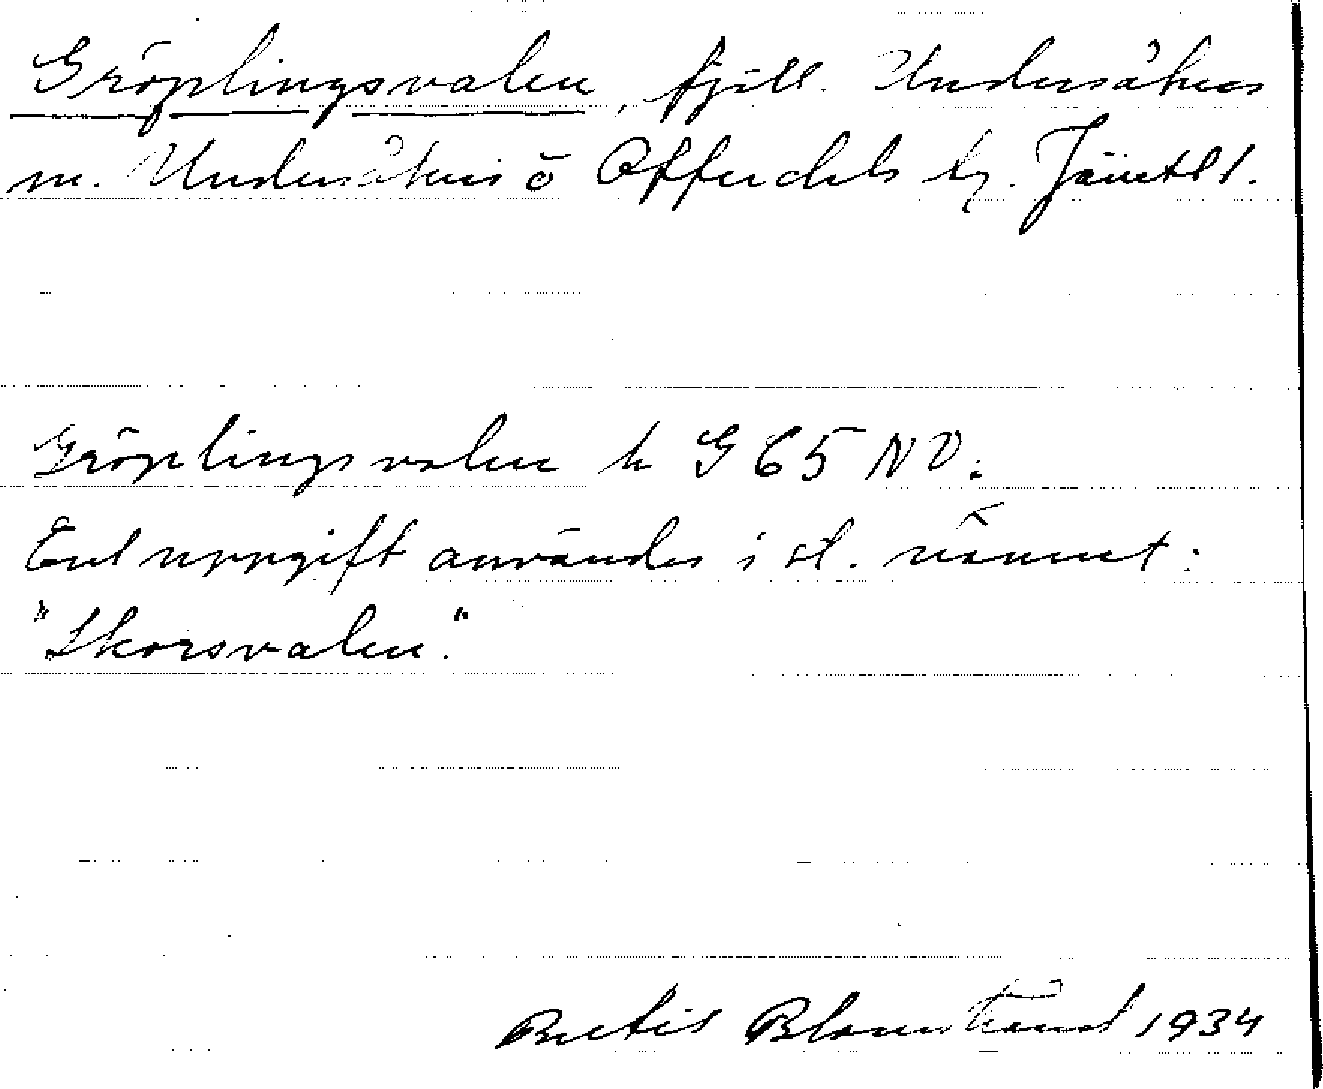 Gröplingsvalen, fjäll. Undersåkers
m. Undersåkers o Offerdals tg. Jämtl l.
Gröplingsvalen k G 65 NV.
Enl uppgift användes i st. namnet:
"Skorsvalen."
Bertil Blomstrand 1934